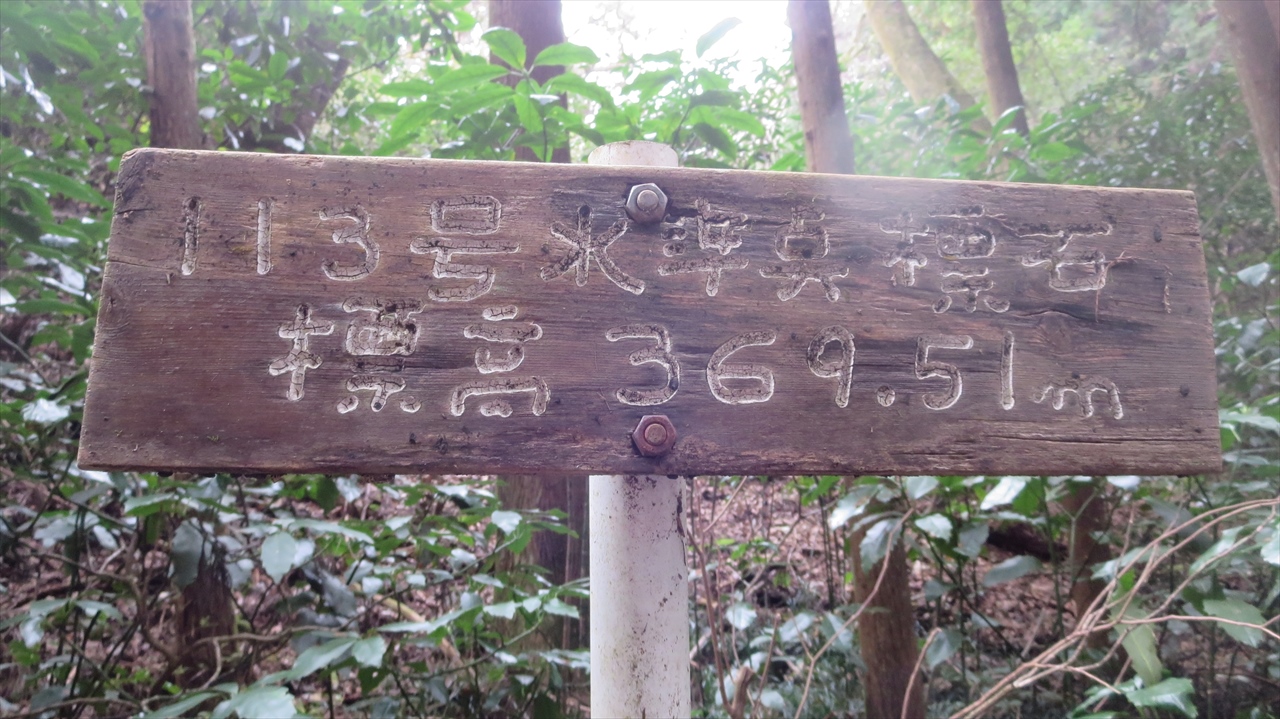 113号水準奌標石
標高 369.51m